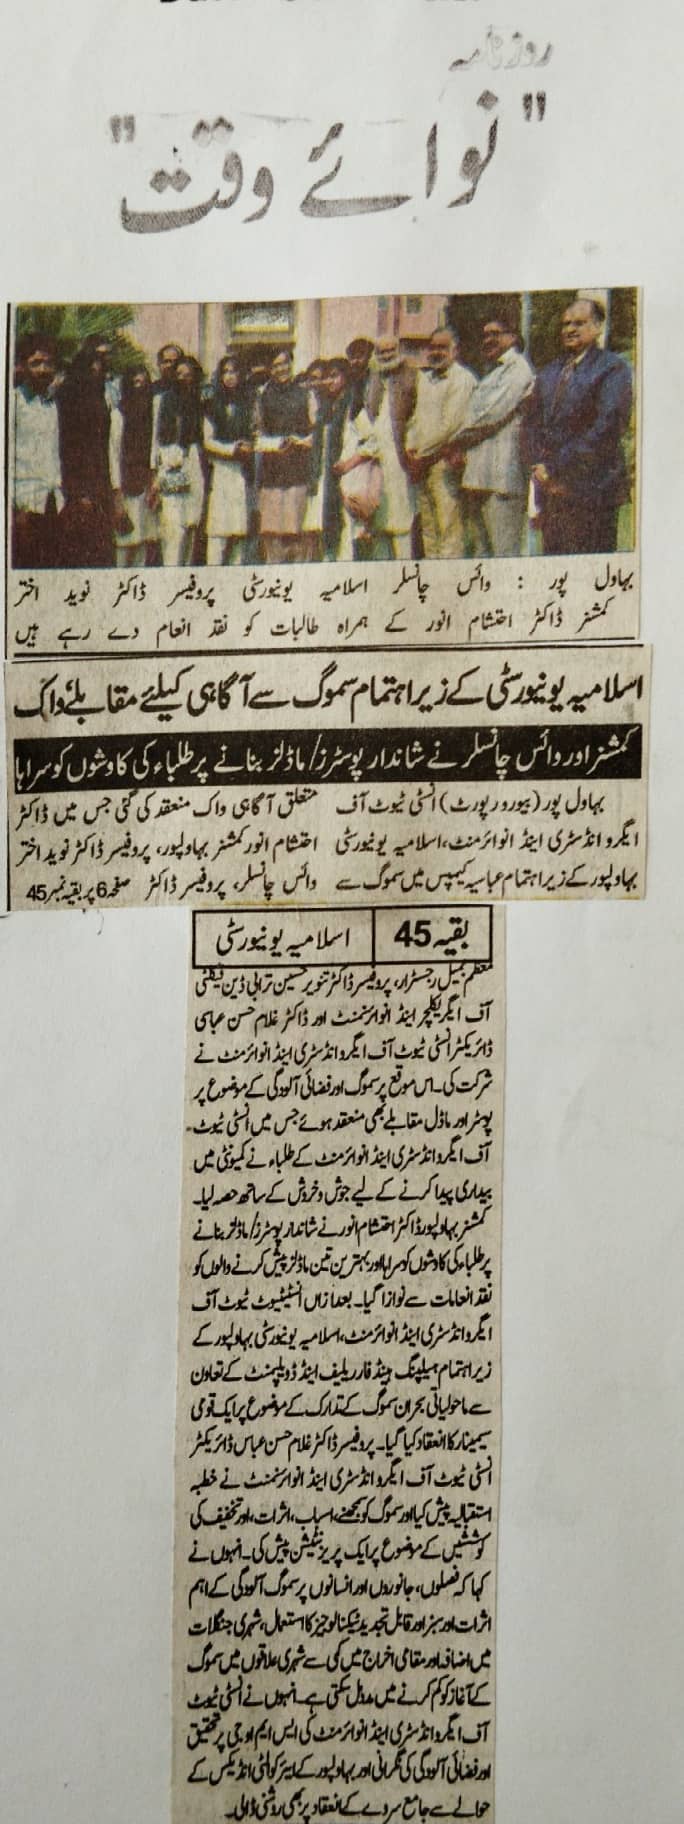 روزنامہ
"نوائے وقت"
بہاول پور : وائس چانسلر اسلامیہ یونیورسٹی پروفیسر ڈاکٹر نوید اختر
کمشنر ڈاکٹر احتشام انور کے ہمراہ طالبات کو نقد انعام دے رہے ہیں
اسلامیہ یونیورسٹی کے زیر اہتمام سموگ سے آگاہی کیلئے مقابلے واک
کمشنر اور وائس چانسلر نے شاندار پوسٹرز/ماڈلز بنانے پر طلباء کی کاوشوں کو سراہا
بہاول پور (بیورورپورٹ) انسٹی ٹیوٹ آف
ایگرو انڈسٹری اینڈ انوائرمنٹ، اسلامیہ یونیورسٹی
بہاولپور کے زیر اہتمام عباسیہ کیمپس میں سموگ سے
متعلق آگاہی واک منعقد کی گئی جس میں ڈاکٹر
احتشام انور کمشنر بہاولپور، پروفیسر ڈاکٹر نوید اختر
وائس چانسلر، پروفیسر ڈاکٹر صفحہ 6 پر بقیہ نمبر 45
بقیہ 45 اسلامیہ یونیورسٹی
معظم جمیل رجسٹرار، پروفیسر ڈاکٹر تنویر حسین ترابی ڈین فیکلٹی
آف ایگریکلچر اینڈ انوائرنمنٹ اور ڈاکٹر غلام حسن عباسی
ڈائریکٹر انسٹی ٹیوٹ آف ایگرو انڈسٹری اینڈ انوائرمنٹ نے
شرکت کی۔ اس موقع پر سموگ اور فضائی آلودگی کے موضوع پر
پوسٹر اور ماڈل مقابلے بھی منعقد ہوئے جس میں انسٹی ٹیوٹ
آف ایگرو انڈسٹری اینڈ انوائرمنٹ کے طلباء نے کمیونٹی میں
بیداری پیدا کرنے کے لیے جوش و خروش کے ساتھ حصہ لیا۔
کمشنر بہاولپور ڈاکٹر احتشام انور نے شاندار پوسٹرز/ماڈلز بنانے
پر طلباء کی کاوشوں کو سراہا اور بہترین تین ماڈلز پیش کرنے والوں کو
نقد انعامات سے نوازا گیا۔ بعد ازاں انسٹیٹیوٹ ٹیوٹ آف
ایگرو انڈسٹری اینڈ انوائرمنٹ، اسلامیہ یونیورسٹی بہاولپور کے
زیر اہتمام ہیلپنگ ہینڈ فار ریلیف اینڈ ڈویلپمنٹ کے تعاون
سے ماحولیاتی بحران سموگ کے تدارک کے موضوع پر ایک قومی
سیمینار کا انعقاد کیا گیا۔ پروفیسر ڈاکٹر غلام حسن عباس ڈائریکٹر
انسٹی ٹیوٹ آف ایگرو انڈسٹری اینڈ انوائرنمنٹ نے خطبہ
استقبالیہ پیش کیا اور سموگ کو سمجھنے، اسباب، اثرات، اور تخفیف کی
کوششیں کے موضوع پر ایک پریزنٹیشن پیش کی۔ انہوں نے
کہا کہ فصلوں، جانوروں اور انسانوں پر سموگ آلودگی کے اہم
اثرات اور سبز اور قابل تجدید ٹیکنالوجیز کا استعمال، شہری جنگلات
میں اضافہ اور مقامی اخراج میں کمی سے شہری علاقوں میں سموگ
کے آغاز کو کم کرنے میں مدد مل سکتی ہے۔ انہوں نے انسٹی ٹیوٹ
آف ایگرو انڈسٹری اینڈ انوائرمنٹ کی ایس ایم او جی پر تحقیق
اور فضائی آلودگی کی نگرانی اور بہاولپور کے ایئر کوالٹی انڈیکس کے
حوالے سے جامع سروے کے انعقاد پر بھی روشنی ڈالی۔